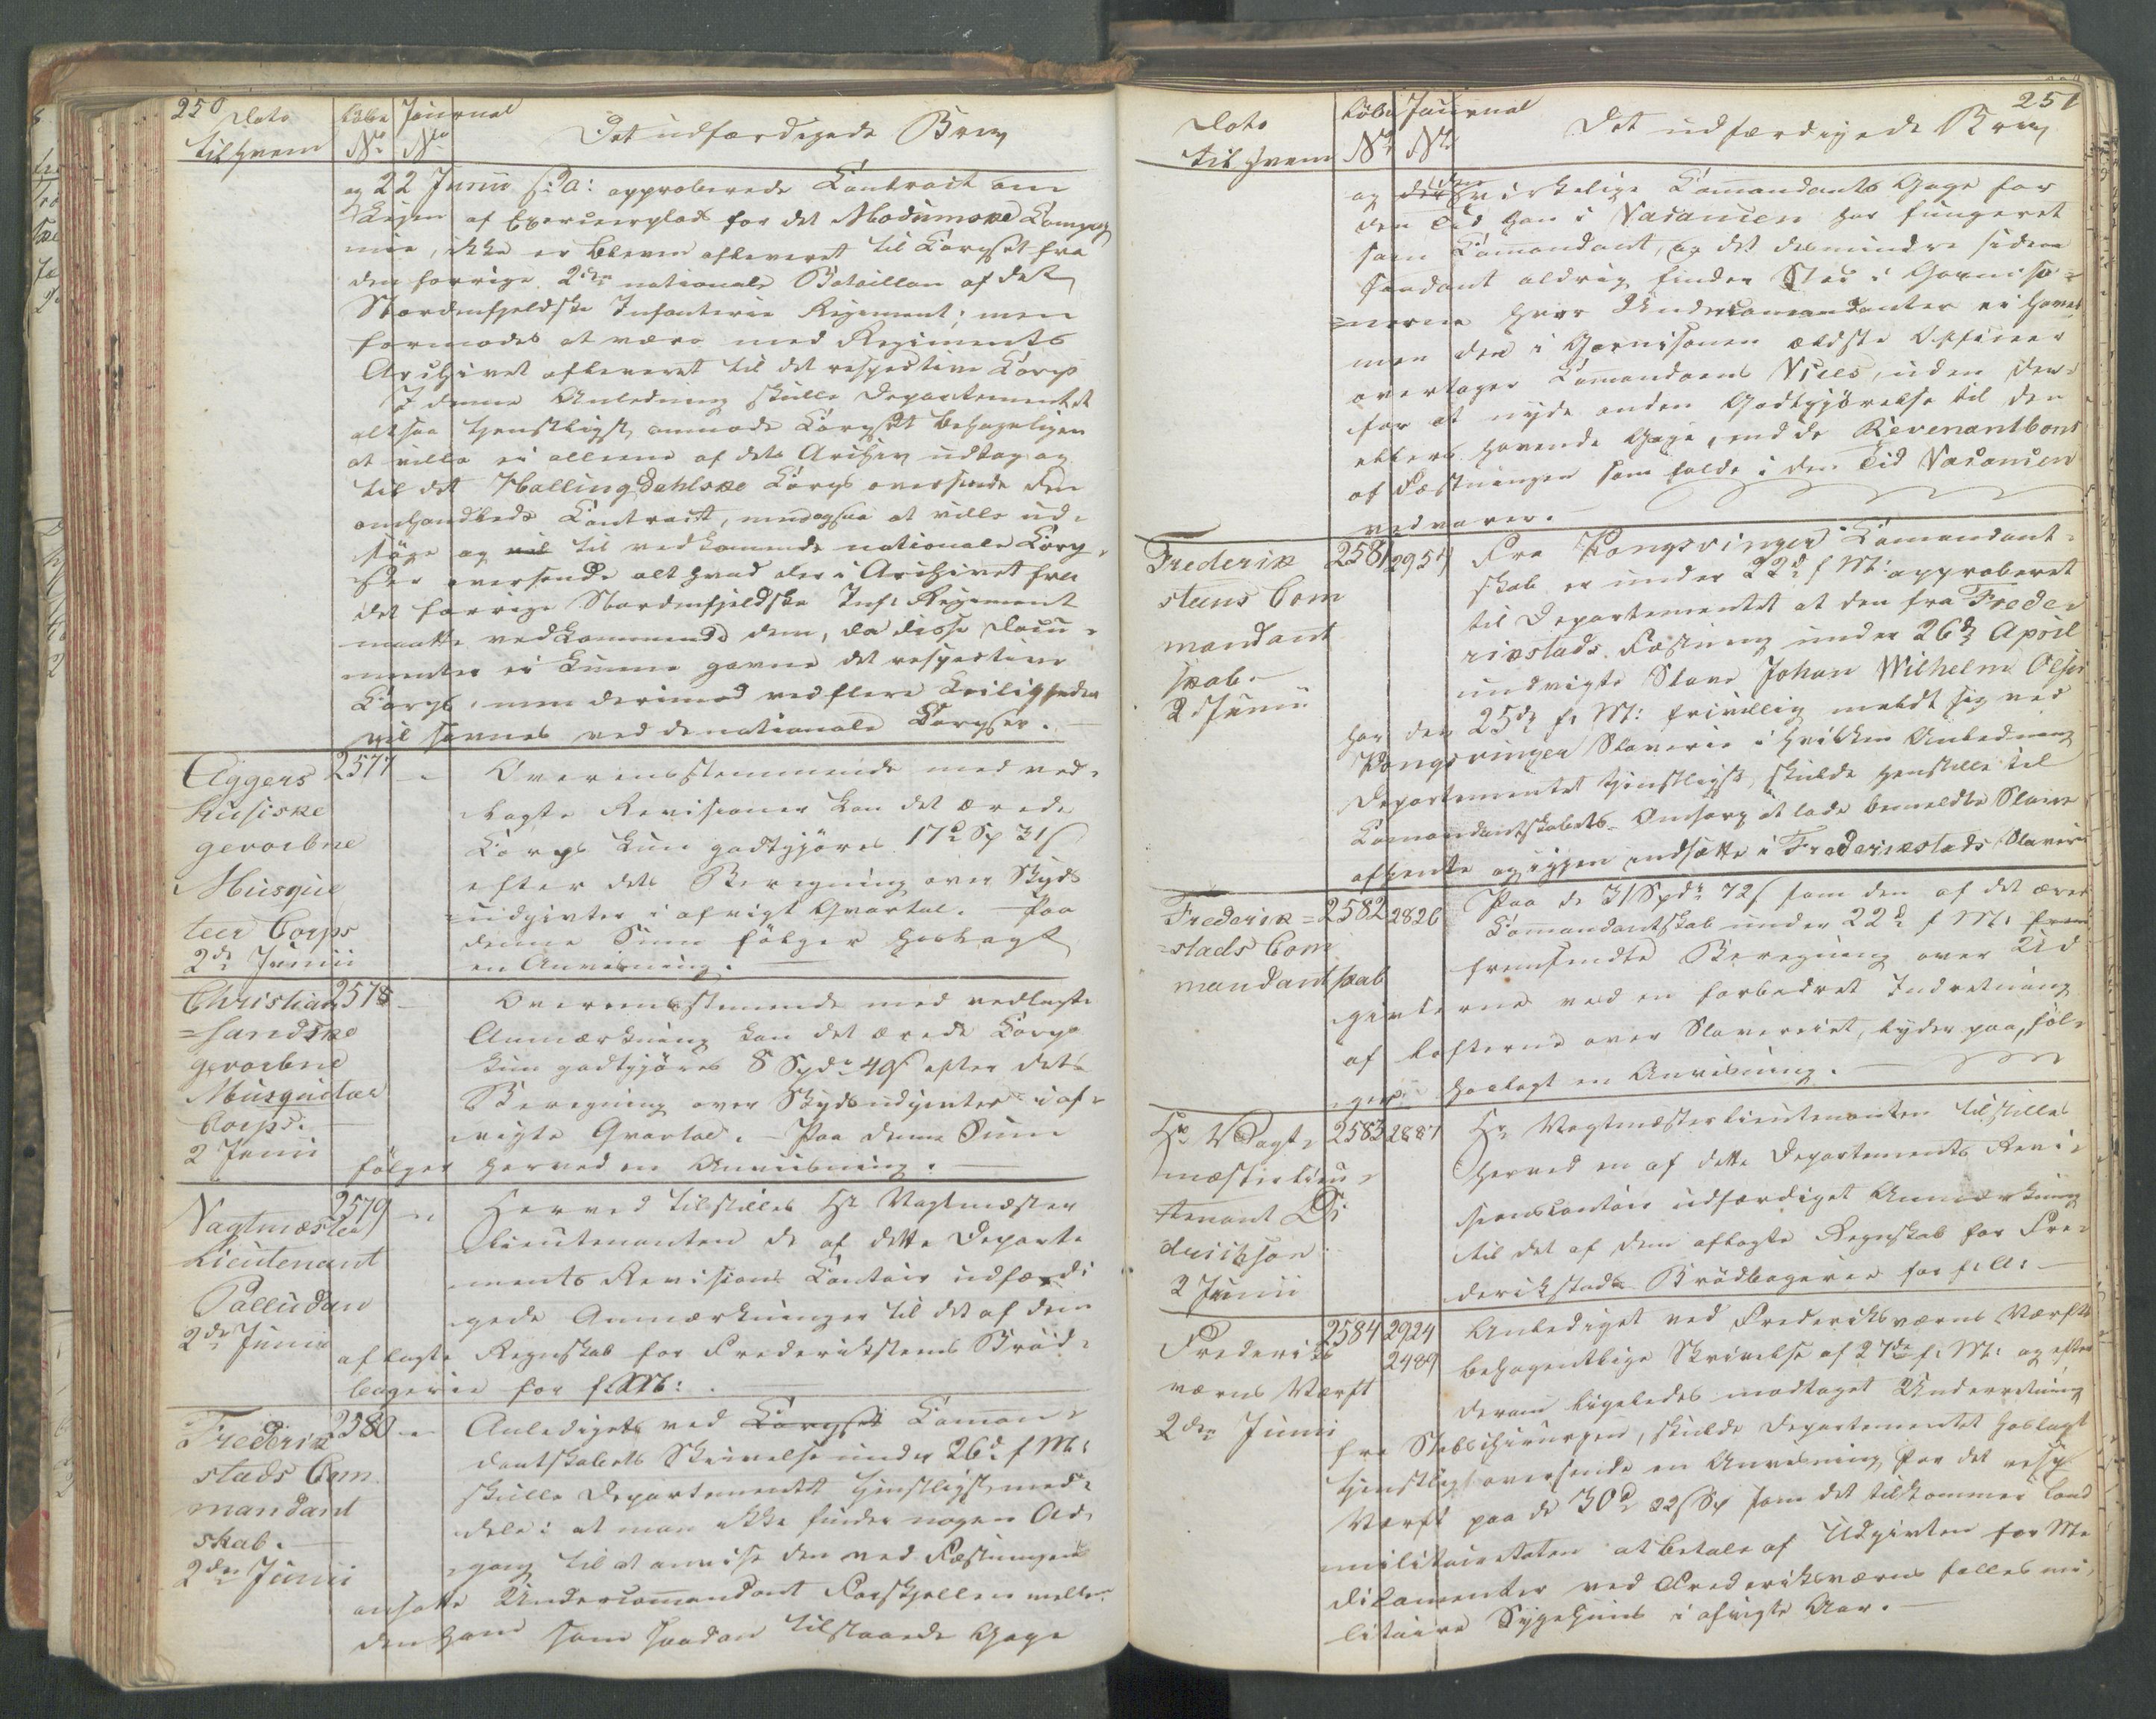 250
Dato
til hvem
Löbe
No
Journal
No
Det udfærdigede Brev
og 22 Junii f: A: approberede Contract om
Leien af Exerceerplads for det Modumske Compag
nie, ikke er bleven afleveret til Corpset fra
den forrige 2den nationale Bataillon af det
Nordenfjeldske Infanterie Regiment; men
formodes at være med Regiments
Archivet afleveret til det respective Corps
I denne Anledning skulle Departementet
altsaa tjenstligst anmode Corpset behageligen
at ville ei allene af dets Archiv udtage og
til det Hallingdahlske Corps oversende den
omhandlede Contract, men ogsaa at ville ud-
söge og til vedkommende nationale Corp-
ser oversende alt hvad der i Archivet fra
det forrige Nordenfjeldske Inf: Regiment
maatte vedkommende dem, da disse Docu-
menter ei kunne gavne det respective
Corps, men derimod ved flere Leiligheder
vil savnes ved de nationale Corpser.
Aggers
husiske
gevorbne
Musque
teer Corps
2den Junii
2577
Overensstemmende med ved-
lagte Revisioner kan det ærede
Corps kun godtgjöres 17d Sp 31ß
efter dets Beregning over Skyds
udgivter i afvigte Qvartal. Paa
denne Sum fölger hoslagt
en Anvisning.
Christian
=sandske
gevorbne
Musqueteer
Corps.
2 Junii
2578
Overensstemmende med vedlagte
Anmærkning kan det ærede Corps
kun godtgjöres 8 Spdr 40ß efter dets
Beregning over Skydsudgivter i af-
vigte Qvartal. Paa denne Sum
fölger herved en Anviisning.
Vagtmester
Lieutenant
Palludan
2den Junii
2579
Herved tilstilles Hr Vagtmester
Lieutenanten de af dette Departe
ments Revisions Contoir udfærdi
gede Anmærkninger til det af dem
aflagte Regnskab for Frederikstens Bröd-
bageri for f: M:
Frederik
stads Com
mandant
skab.
2den Junii
2580
Anlediget ved Corpset Comman-
dantskabets Skrivelse under 26d f M:
skulle Departementet tjenstligst med-
dele: at man ikke finder nogen Ad-
gang til at anvise den ved Fæstningen
ansatte Undercommandant Forskjellen mellem
den ham som saadan tilstaaede Gage
251
Dato
til hvem
Löbe
No
Journal
No
Det udfærdigede Brev
og den virkelige Commandants Gage for
den Tid han i Vacancen har fungeret
som Commandant, og det desmindre siden
saadant aldrig finder Sted i Garniso-
nerne hvor Undercommandanter ei haves
men den i Garnisonen ældste Officeer
overtager Commandoens Vices, uden der-
for at nyde anden Godtgjörelse til den
ellers havende Gage, end de Revenantbons
af Fæstningen som falde i den Tid Vacancen
vedvarer.
Frederik
steens Com
mandant
skab.
2 Junii
2581
2954
Fra Kongsvinger Commandant-
skab er under 22d f M: approberet
til Departementet at den fra Frede-
rikstads Fæstning under 26de April
undvigte Slave Johan Wilhelm Olsen
har den 25de f: M: frivillig meldt sig ved
Kongsvinger Slaverie i hvilken Anledning
Departementet tjenstligst skulde henstille til
Commandantskabets Omsorg at lade bemeldte Slave
afhente og igjen indsætte i Frederikstads Slaveri
Frederik=
=stads Com
mandantskab
2582
2826
Paa de 31 Spdr 72ß som den af det ærede
Commandantskab under 22d f M:
fremsendte Beregning over Ud
givterne ved en forbedret Indretning
af Lofterne over Slaveriet, lyder paa, föl-
ger hoslagt en Anvisning.
Hr Vagt-
mesterlieu-
tenant Di
derichsen
2 Junii
2583
2887
Hr Vagtmesterlieutenanten tilstilles
herved en af dette Departements Revi-
sionscontoir udfærdiget Anmærkning
til det af dem aflagte Regnskab for Fre-
derikstads Brödbageri for f: A:
Frederiks
værns Værft
2den Junii
2584
2924
2489
Anlediget ved Frederiksværns Værfts
behagentlige Skrivelse af 27de f: M: og efter
derom ligeledes modtaget Underretning
fra Stabschirurgen, skulde Departementet hoslagt
tjenstligst oversende en Anvisning for det resp
Værft paa de 30d 22ß Sp som det tilkommer Land
militairetaten at betale af Udgivten for Me
dicamenter ved Frederiksværns fælles mi-
litaire Sygehuus i afvigte Aar.